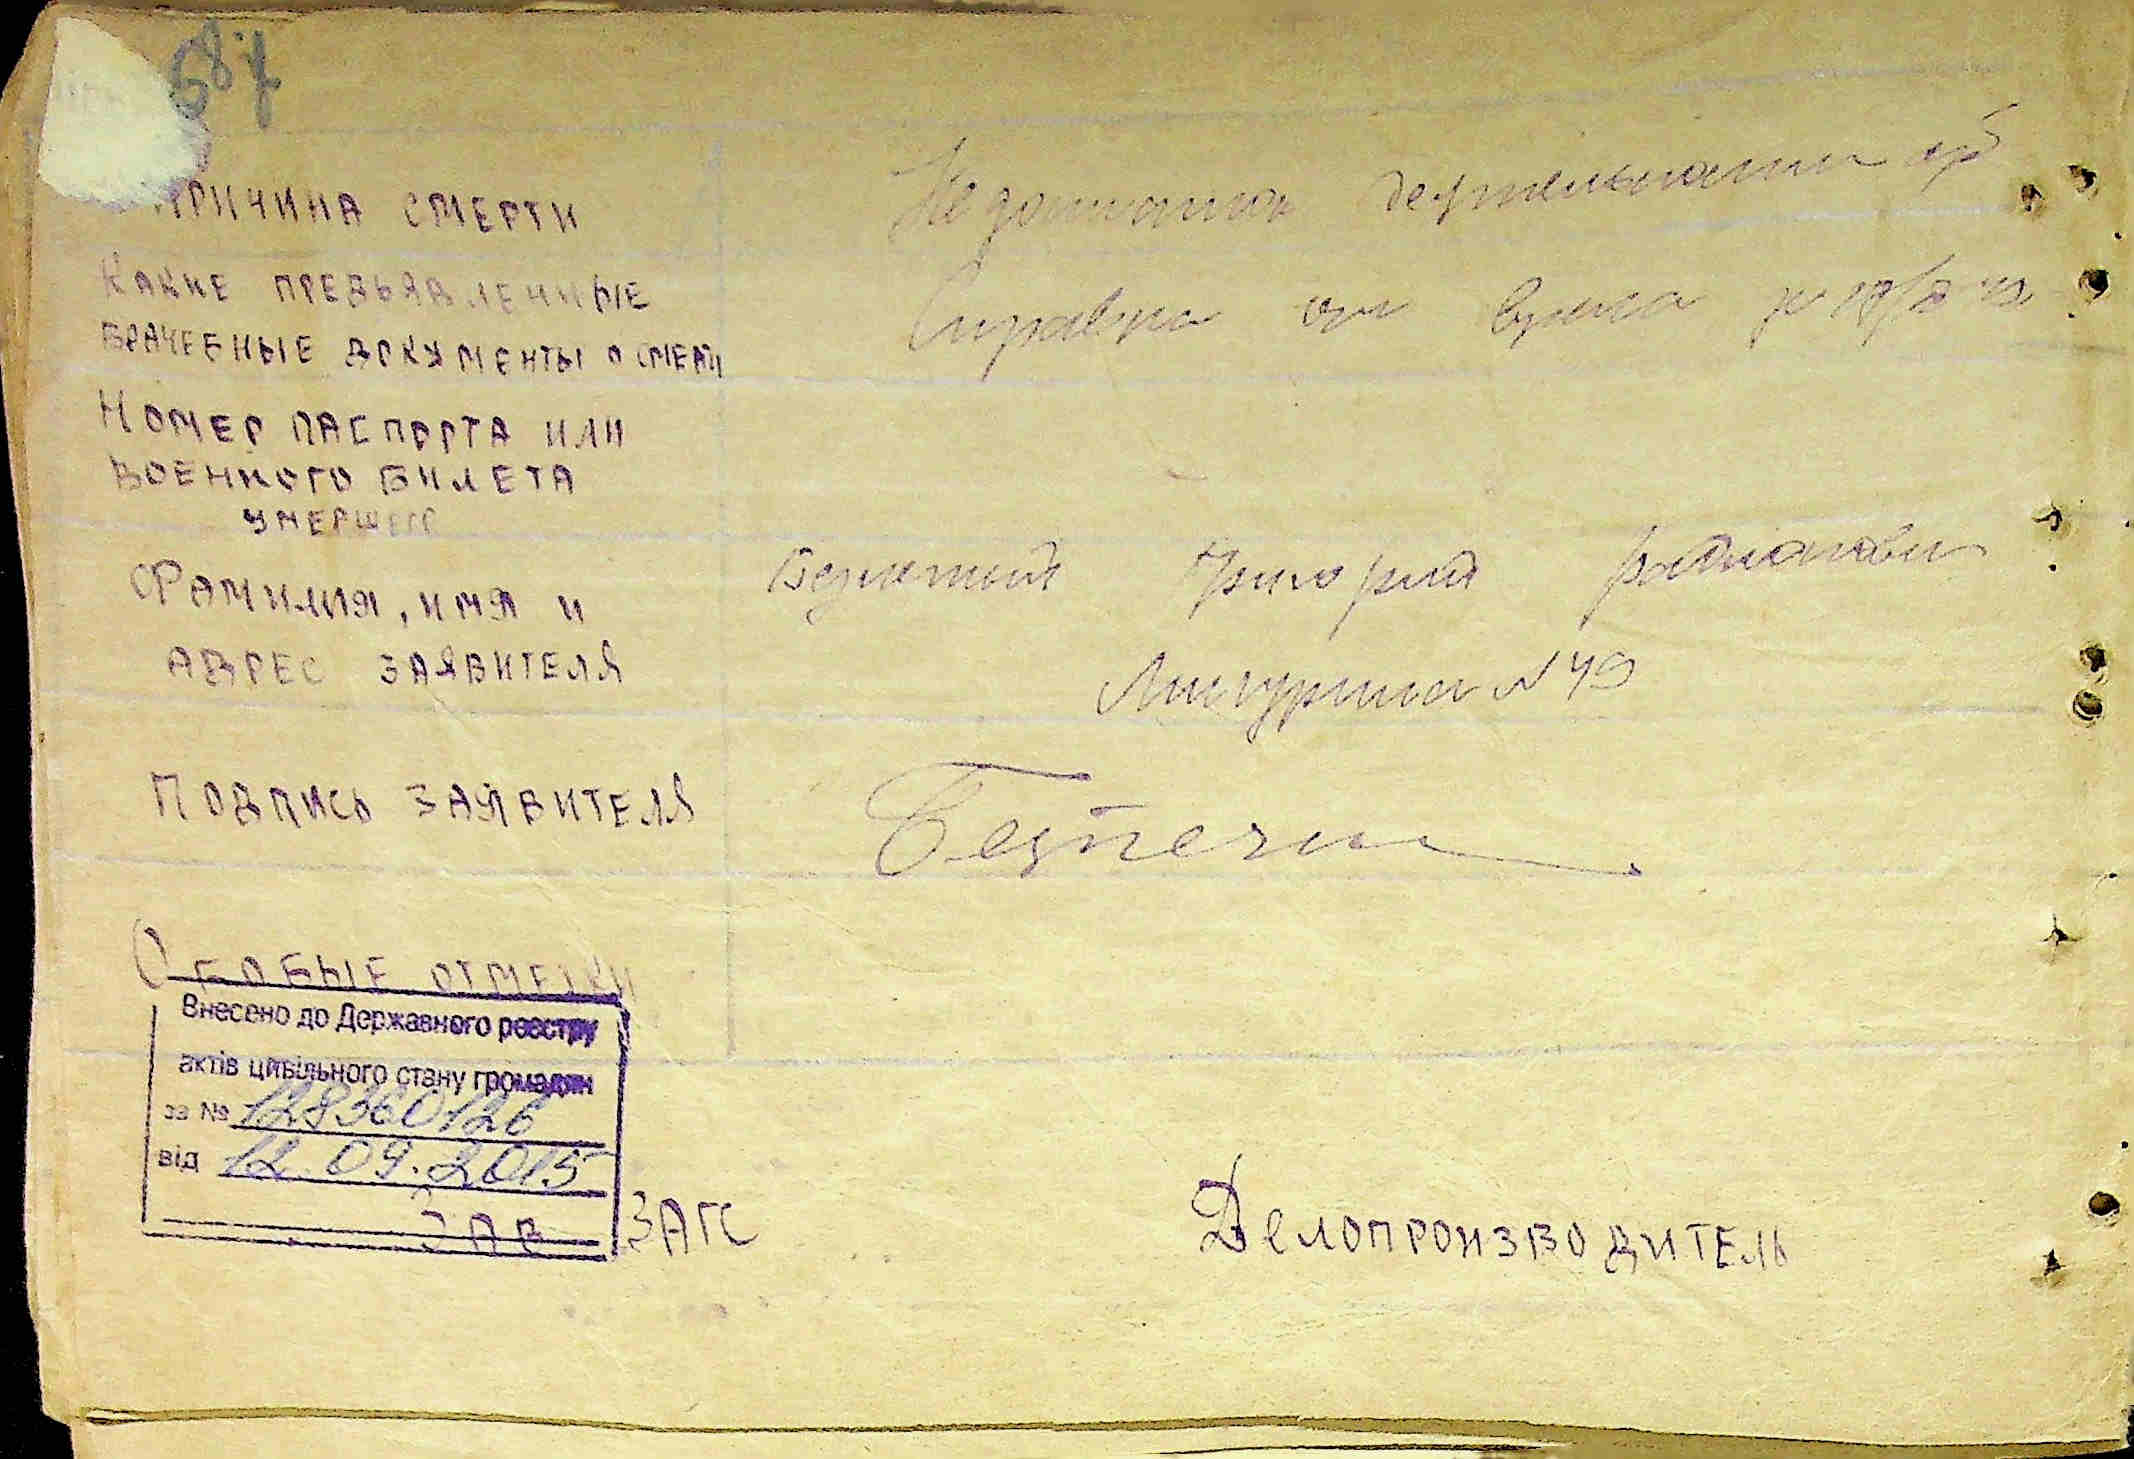 687
ПРИЧИНА СМЕРТИ
Недостаток деятельности
КАКИЕ ПРЕДЪЯВЛЕННЫЕ
ВРАЧЕБНЫЕ ДОКУМЕНТЫ О СМЕРТИ
Справка от врача
НОМЕР ПАСПОРТА ИЛИ
ВОЕННОГО БИЛЕТА
УМЕРШЕГО
ФАМИЛИЯ, ИМЯ И
Григорий
АДРЕС ЗАЯВИТЕЛЯ
Мичурина № 49
ПОДПИСЬ ЗАЯВИТЕЛЯ
ОСОБЫЕ ОТМЕТКИ
Внесено до Державного реєстру
актів цивільного стану громадян
за № 128360126
від 12.09.2015
ЗАВ ЗАГС
ДЕЛОПРОИЗВОДИТЕЛЬ